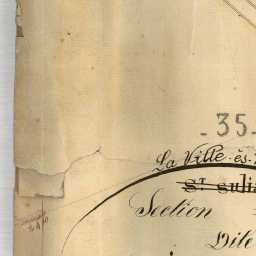 - 35 -
La Ville-ès-
St Sulia
Section
Dite